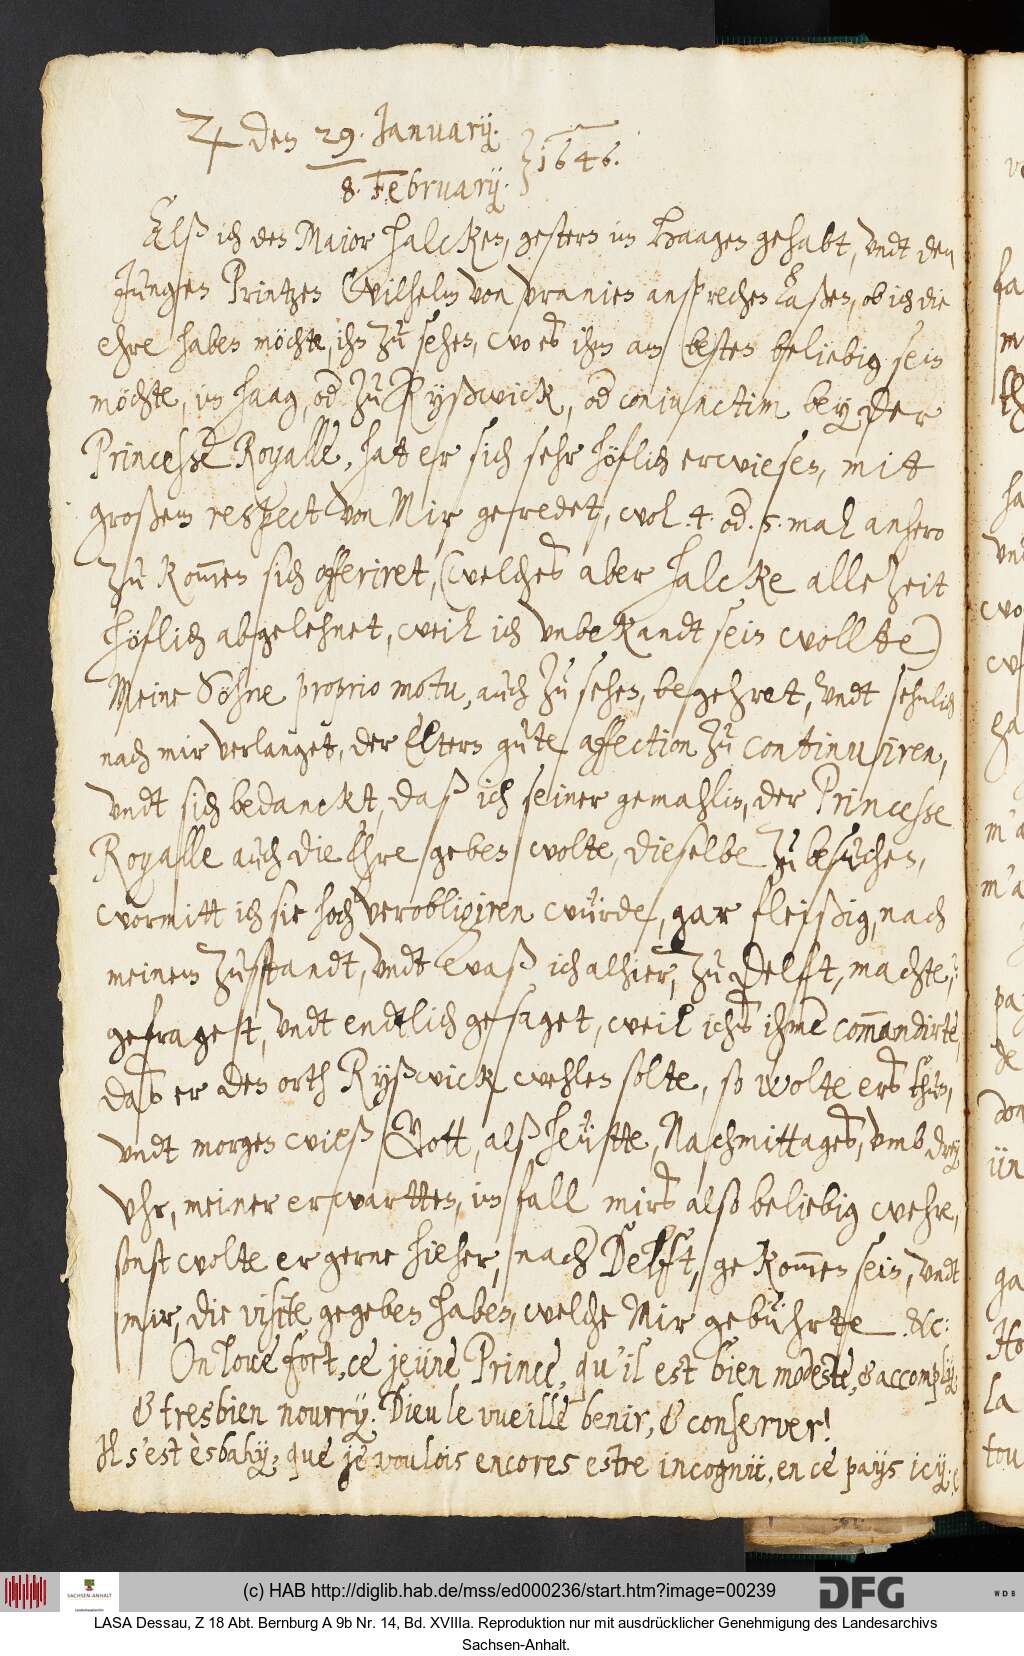 ♃ den 29. January.
8. February. } 1646.
Alß ich den Major Halcken, gestern im Haagen gehabt, undt den
Jungen Printzen Wilhelm von Uranien ansprechen laßen, ob ich die
ehre haben möchte, ihn zu sehen, wo es ihm am besten beliebig sein
möchte, im Haag, od zu Ryßwick, od conjunctim bey der
Princesse Royalle, hat er sich sehr höflich erwiesen, mit
großem respect von Mir geredet, wol 4. od. 5. mal anhero
zu kom̅en sich offeriret, (welches aber Halcke alle zeit
höflich abgelehnet, weil ich unbekandt sein wollte)
Meine Söhne proprio motu, auch zu sehen, begehret, undt sehnlich
nach mir verlanget, der Eltern gute affection zu continuiren,
undt sich bedanckt, daß ich seiner gemahlin, der Princesse
Royalle auch die Ehre geben wolte, dieselbe zu besuchen,
wormitt ich sie hoch verobligiren würde, gar fleißig, nach
meinem zustandt, undt waß ich alhier, zu Delft, machte,
gefraget, undt endtlich gesaget, weil ichs ihme com̅andirte,
das er den orth Ryßwick wehlen solte, so wolte ers thun,
undt morgen wieß Gott, alß heütte, Nachmittages, umb drey
Uhr, meiner erwartten, im fall mirs also beliebig wehre,
sonst wolte er gerne hieher, nach Delft, gekom̅en sein, undt
mir, die visite gegeben haben, welche Mir gebührte &c:
On loué fort, ce jeüne Prince, qu'il est bien modeste, & accomply,
& tresbien nourry. Dieu le vueille benir, & conserver!
Il s'est èsbahy, que je voulois encores estre incognü, en ce pays icy,
(c) HAB http://diglib.hab.de/mss/ed000236/start.htm?image=00239
DFG
WDB
SACHSEN-ANHALT
LASA Dessau, Z 18 Abt. Bernburg A 9b Nr. 14, Bd. XVIIIa. Reproduktion nur mit ausdrücklicher Genehmigung des Landesarchivs
Sachsen-Anhalt.